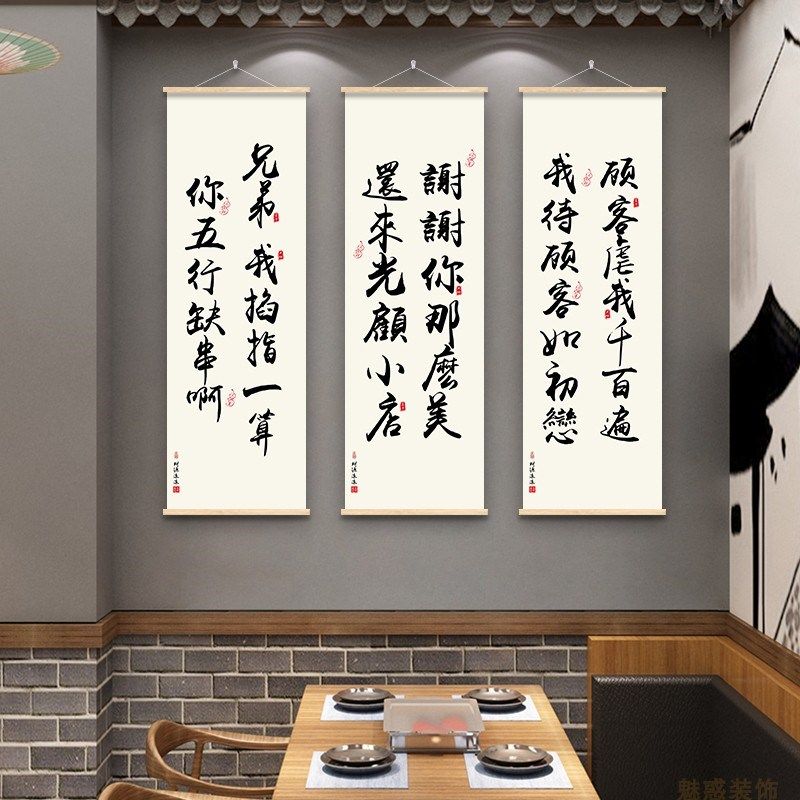 顾客虐我千百遍
我待顾客如初戀
謝謝你那麼美
還來光顧小店
兄弟 我掐指一算
你五行缺串啊
魅惑装饰